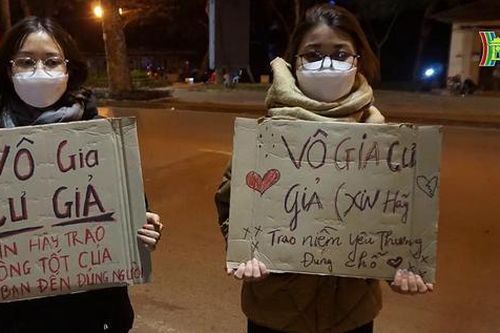 VÔ Gia
CƯ GIẢ
XIN HÃY TRAO
LÒNG TỐT CỦA
BẠN ĐẾN ĐÚNG NGƯỜI
VÔ GIA CƯ
GIẢ (XIN Hãy
Trao niềm yêu Thương
Đúng chỗ